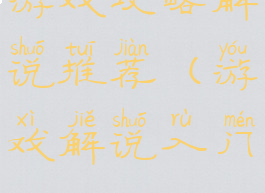 游戏攻略解
shuō tuī jiàn yóu
说推荐(游
xì jiě shuō rù mén
戏解说入门